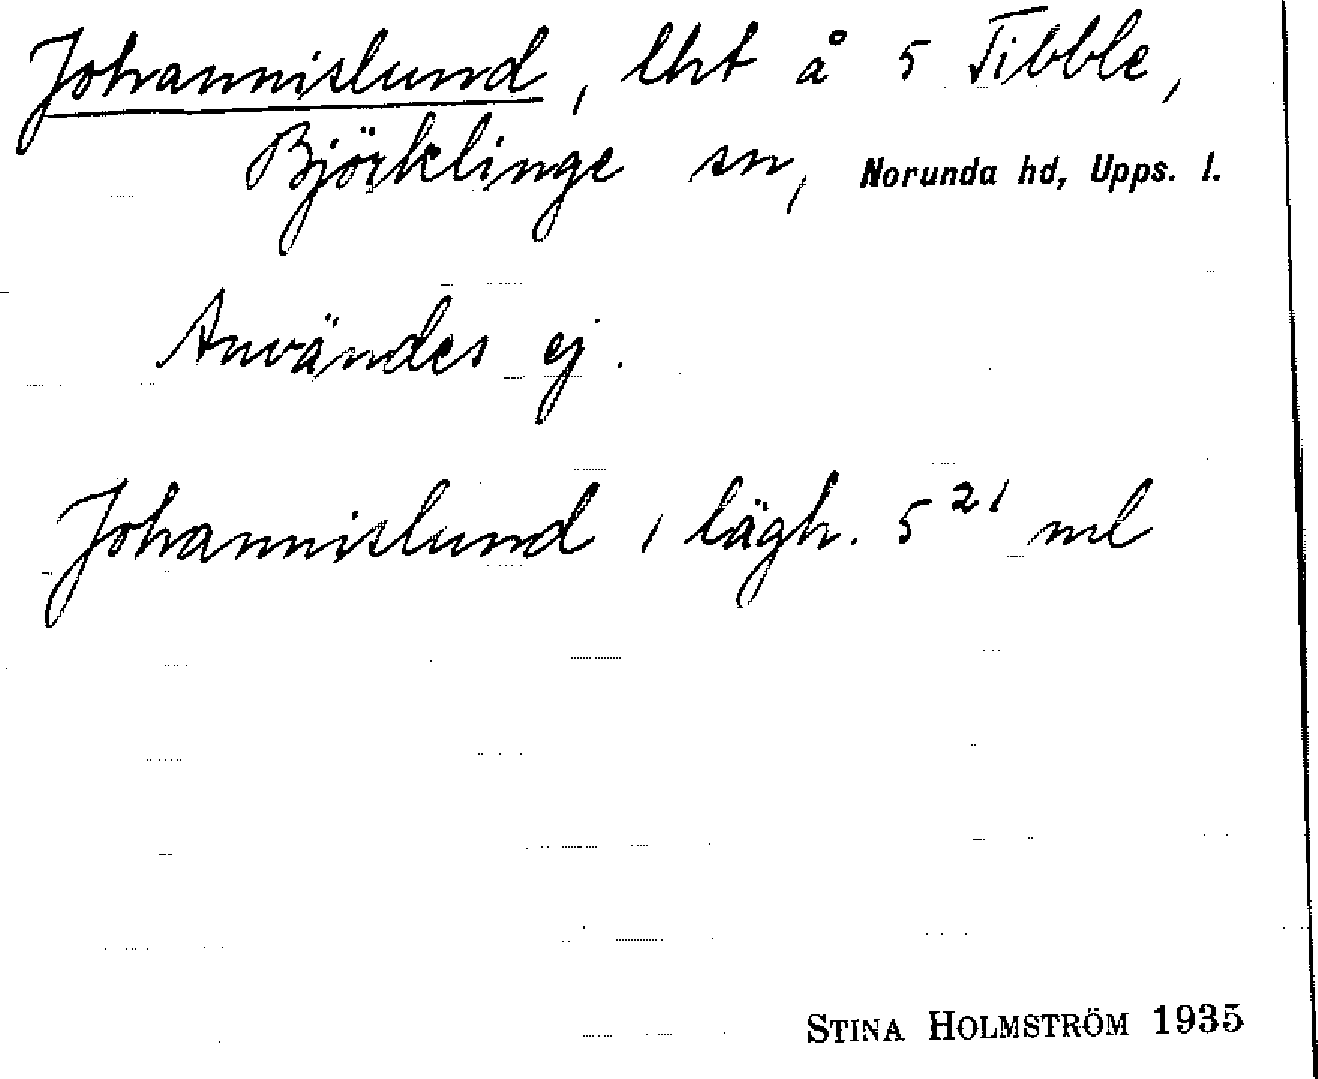 Johannislund, lht å 5 Tibble,
Björklinge sn, Norunda hd, Upps. l.
Användes ej.
Johannislund, lägh. 5²¹ ml
STINA HOLMSTRÖM 1935